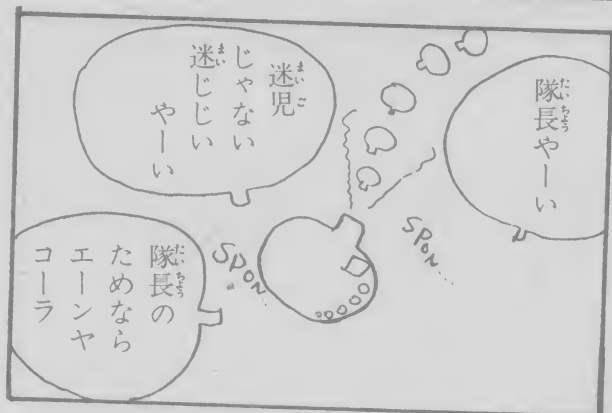 隊長やーい
迷児
じゃない
迷じじい
やーい
隊長の
ためなら
エーンヤ
コーラ
SPON...
SPON..